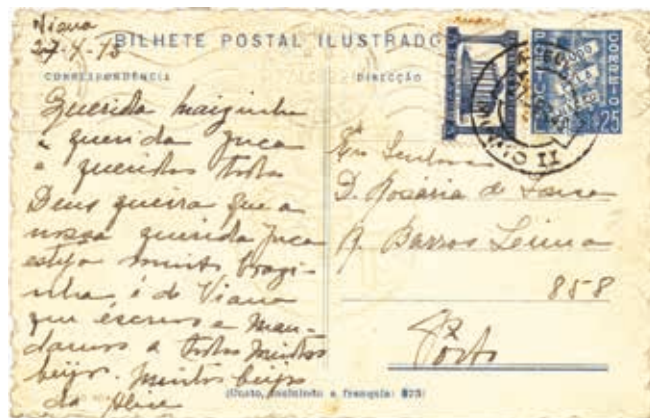 Viana
27-4-45
BILHETE POSTAL ILUSTRADO
CORRESPONDÊNCIA
DIRECÇÃO
Querida mãizinha
e querida Juca
e queridos todos
Deus queira que a
nossa querida Juca
esteja muito
é de Viana
que escrevo e man-
damos a todos muitos
beijos. Muitos beijos
da Alice
CORREIO
PORTUGAL
TUDO
PELA
NAÇÃO
$25
D. Rosária de Sousa
R. Barros Leima
858
Porto
(Custo, incluindo a franquia: $75)